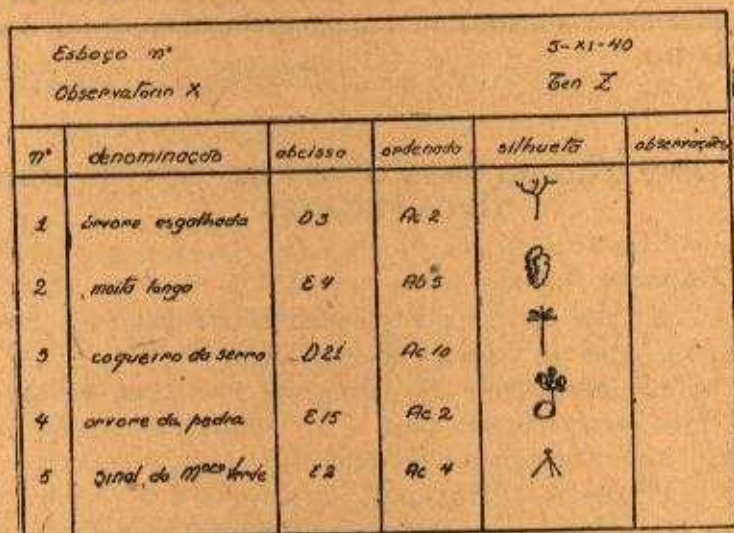 Esboço nº 5-XI-40
Observatorio X Ten Z
nº denominação abcissa ordenada silhueta observações
1 árvore esgalhada D3 Ac 2
2 moita longa E4 Ab 5
3 coqueiro da serra D21 Ac 10
4 arvore da pedra E15 Ac 2
5 sinal do Verde E2 Ac 4